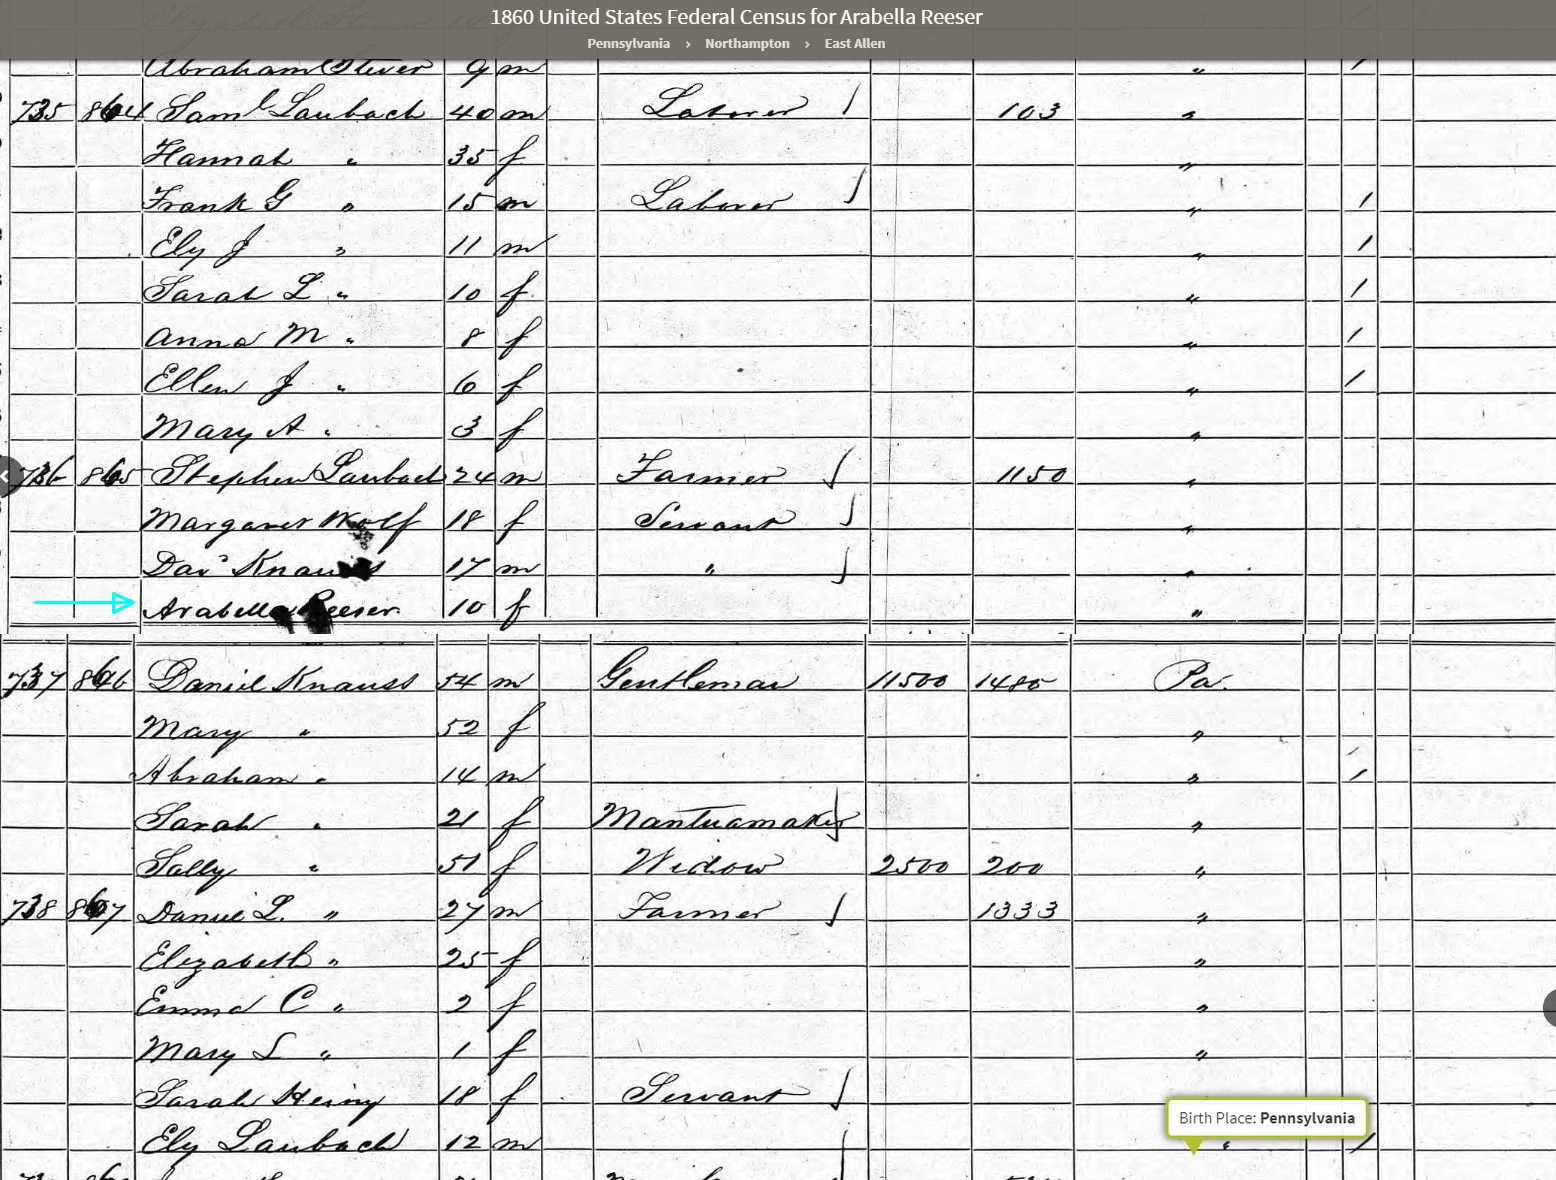 1860 United States Federal Census for Arabella Reeser
Pennsylvania › Northampton › East Allen
Abraham Stuver 9 m "
735 864 Saml Laubach 40 m Laborer 103 "
Hannah " 35 f "
Frank G " 15 m Laborer " /
Ely J " 11 m " /
Sarah L " 10 f " /
Anna M " 8 f " /
Ellen J " 6 f " /
Mary A " 3 f "
736 865 Stephen Laubach 24 m Farmer 1150 "
Margaret Wolf 18 f Servant "
Davd Knauss 17 m " "
Arabella Reeser 10 f "
737 866 Daniel Knauss 54 m Gentleman 11500 1485 Pa.
Mary " 52 f "
Abraham " 14 m " /
Sarah " 21 f Mantuamaker "
Sally " 51 f Widow 2500 200 "
738 867 Daniel L. " 27 m Farmer 1333 "
Elizabeth " 25 f "
Emma C " 2 f "
Mary S " 1 f "
Sarah Heiny 18 f Servant
Birth Place: Pennsylvania
Ely Laubach 12 m " /